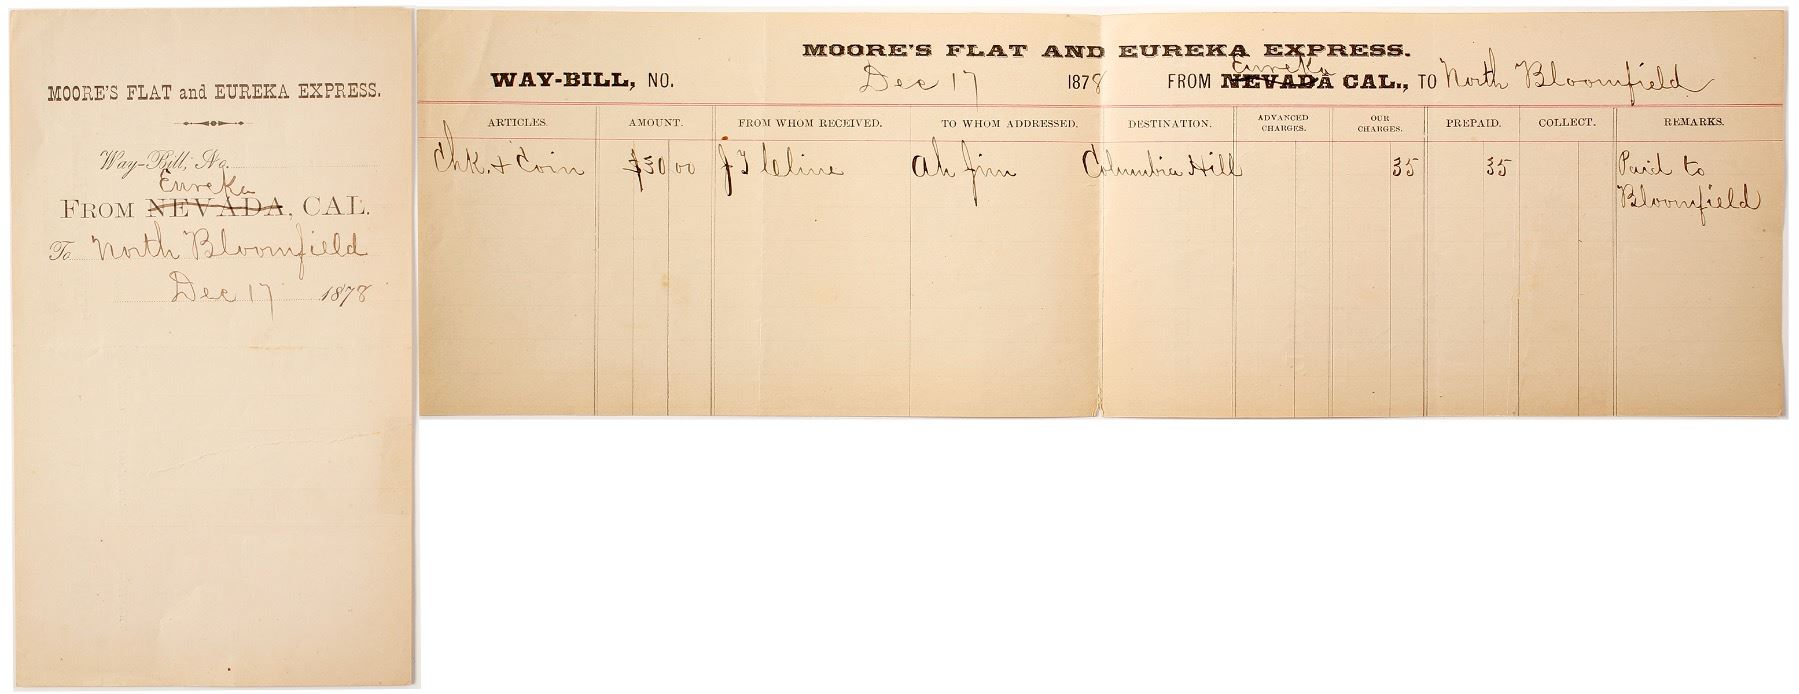 MOORE'S FLAT and EUREKA EXPRESS.
Way-Bill, No.
Eureka
FROM NEVADA, CAL.
To North Bloomfield
Dec 17 1878
MOORE'S FLAT AND EUREKA EXPRESS.
Eureka
WAY-BILL, NO. Dec 17 1878 FROM NEVADA CAL., TO North Bloomfield
ARTICLES. AMOUNT. FROM WHOM RECEIVED. TO WHOM ADDRESSED. DESTINATION. ADVANCED CHARGES. OUR CHARGES. PREPAID. COLLECT. REMARKS.
Chk. + Coin $30 00 J T Cline Ah Jim Columbia Hill 35 35 Paid to
Bloomfield